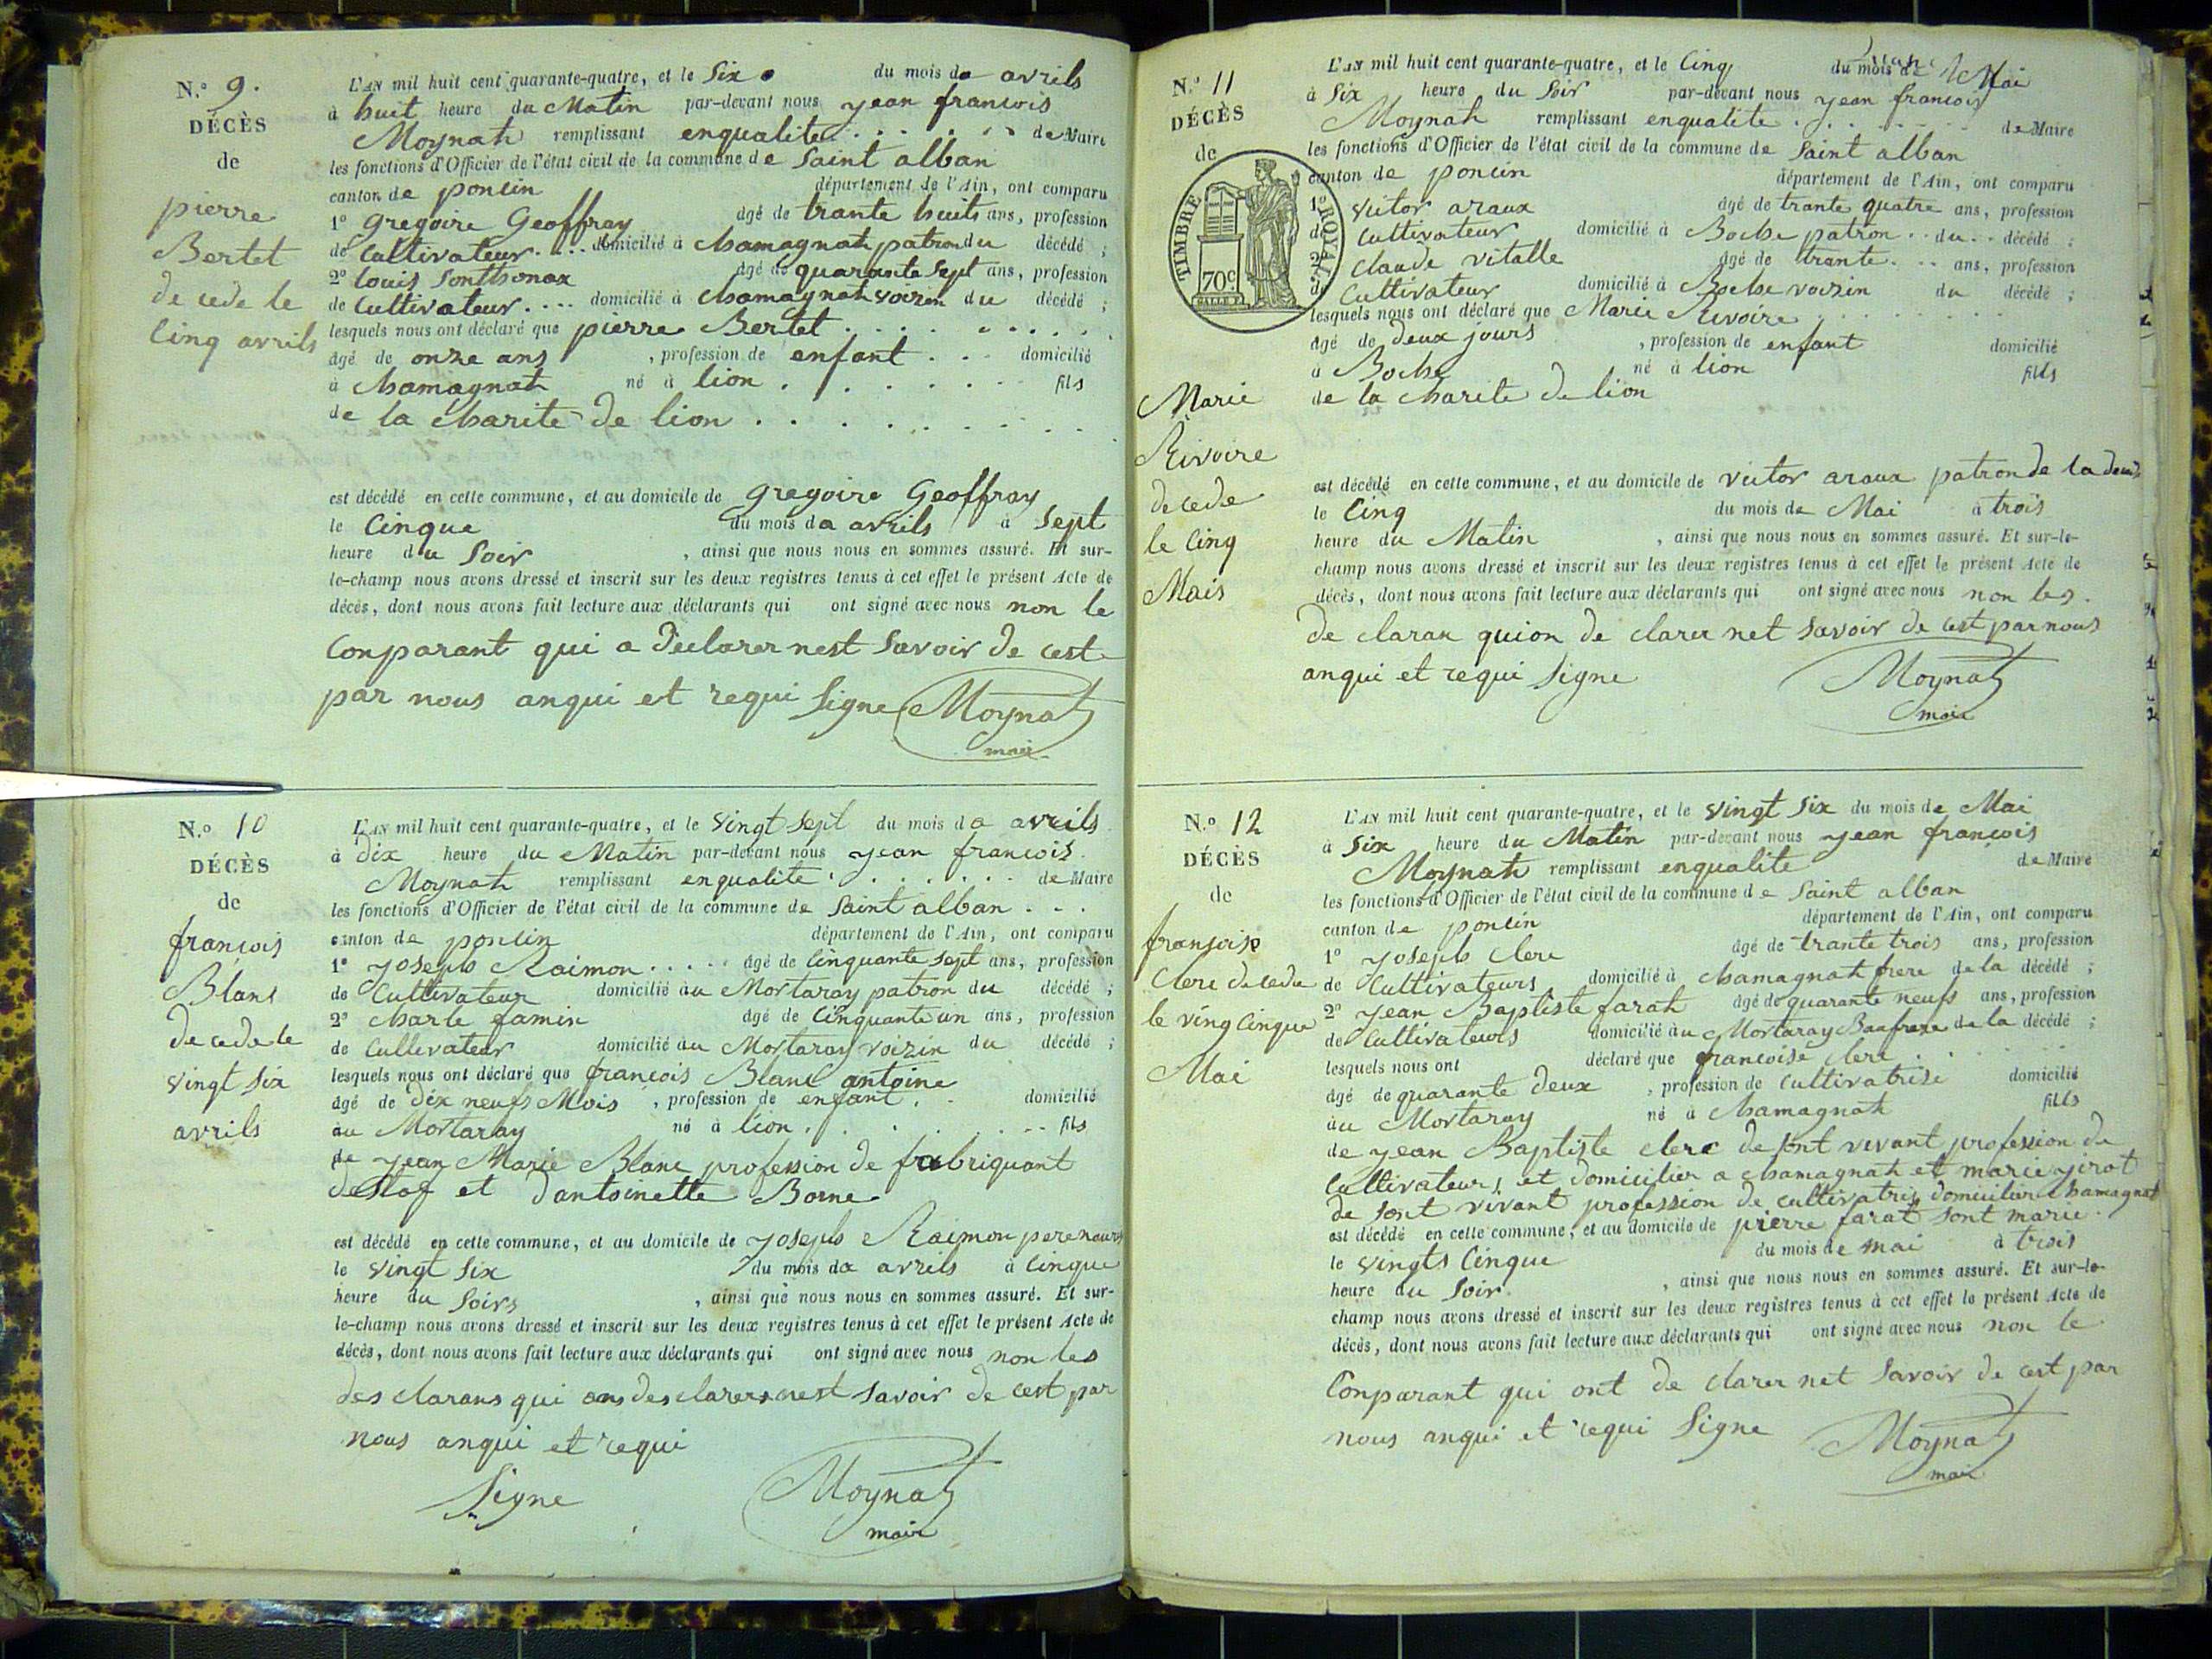 N.º 9.
DÉCÈS
de
pierre
Bertet
de cede le
Cinq avrils
L'AN mil huit cent quarante-quatre, et le Six du mois da avrils
à huit heure du Matin par-devant nous yean francois
Moynah remplissant enqualite . . . . . de Maire
les fonctions d'Officier de l'état civil de la commune de Saint alban
canton de poncin département de l'Ain, ont comparu
1º gregoire Geoffray âgé de trante huits ans, profession
de Cultivateur . . . domicilié à Chamagnah patron du décédé ;
2º louis Sonthonax âgé de quarante Sept ans, profession
de Cultivateur . . . domicilié à Chamagnah voizin du décédé ;
lesquels nous ont déclaré que pierre Bertet . . . . . . . .
âgé de onze ans , profession de enfant . . . domicilié
à Chamagnah né à lion . . . . . . . fils
de la Charite de lion . . . . . . . . .
est décédé en cette commune, et au domicile de gregoire Geoffray
le Cinque du mois da avrils à Sept
heure du Soir , ainsi que nous nous en sommes assuré. Et sur-
le-champ nous avons dressé et inscrit sur les deux registres tenus à cet effet le présent Acte de
décès, dont nous avons fait lecture aux déclarants qui ont signé avec nous non le
Conparant qui a declarer nest Savoir de cest
par nous anqui et requi Signe Moynat
mair
N.º 10
DÉCÈS
de
françois
Blanc
de cede le
vingt six
avrils
L'AN mil huit cent quarante-quatre, et le Vingt Sept du mois da avrils
à dix heure du Matin par-devant nous yean francois
Moynah remplissant enqualite . . . . . . de Maire
les fonctions d'Officier de l'état civil de la commune de Saint alban . . .
canton de poncin département de l'Ain, ont comparu
1º yoseph Raimon . . . . . âgé de Cinquante Sept ans, profession
de Cultivateur domicilié au Mortaray patron du décédé ;
2º Charle famin âgé de Cinquante un ans, profession
de Cultivateur domicilié au Mortaray voizin du décédé ;
lesquels nous ont déclaré que françois Blanc antoine
âgé de dix neufs Mois , profession de enfant . . domicilié
au Mortaray né à lion . . . . . . . fils
de yean Marie Blanc profession de fabriquant
et dantoinette Borne
est décédé en cette commune, et au domicile de yoseph Raimon
le vingt Six du mois da avrils à Cinque
heure du Soirs , ainsi que nous nous en sommes assuré. Et sur-
le-champ nous avons dressé et inscrit sur les deux registres tenus à cet effet le présent Acte de
décès, dont nous avons fait lecture aux déclarants qui ont signé avec nous non les
des clarans qui ons desclarer nest Savoir de cest par
nous anqui et requi
Signe Moynat
mair
N.º 11
DÉCÈS
de
TIMBRE ROYAL
70c
Marie
Rivoire
de cede
le Cinq
Mais
L'AN mil huit cent quarante-quatre, et le Cinq du mois de Mai
à Six heure du Soir par-devant nous yean françois
Moynah remplissant enqualite . . . . . . de Maire
les fonctions d'Officier de l'état civil de la commune de Saint alban
canton de poncin département de l'Ain, ont comparu
1º Victor araux âgé de trante quatre ans, profession
de Cultivateur domicilié à Boche patron . . du . . décédé ;
2º Claude vitalle âgé de trante . . . ans, profession
de Cultivateur domicilié à Boche voizin du décédé ;
lesquels nous ont déclaré que Marie Rivoire . . . . . . .
âgé de deux jours , profession de enfant domicilié
à Boche né à lion fills
de la Charite de lion
est décédé en cette commune, et au domicile de Victor araux patron de la
le Cinq du mois de Mai à trois
heure du Matin , ainsi que nous nous en sommes assuré. Et sur-le-
champ nous avons dressé et inscrit sur les deux registres tenus à cet effet le présent Acte de
décès, dont nous avons fait lecture aux déclarants qui ont signé avec nous non les
de claran quion de clarer net Savoir de cest par nous
anqui et requi Signe Moynat
mair
N.º 12
DÉCÈS
de
françoise
Clerc de cede
le ving Cinque
Mai
L'AN mil huit cent quarante-quatre, et le vingt Six du mois de Mai
à Six heure du Matin par-devant nous yean françois
Moynah remplissant enqualite de Maire
les fonctions d'Officier de l'état civil de la commune de Saint alban
canton de poncin département de l'Ain, ont comparu
1º yoseph Clerc âgé de trante trois ans, profession
de Cultivateurs domicilié à Chamagnah frere de la décédé ;
2º yean Baptiste farah âgé de quarante neufs ans, profession
de Cultivateurs domicilié au Mortaray Baufrere de la décédé ;
lesquels nous ont déclaré que françoise Clerc . . . .
âgé de quarante deux , profession de Cultivatrise domicilié
au Mortaray né à Chamagnah fills
de yean Baptiste Clerc de font vivant profession de
Cultivateurs et domicilier a Chamagnah et marie yirot
de font vivant profession de cultivatris domicilier Chamagnat
est décédé en cette commune, et au domicile de pierre farat sont marie .
le vingts Cinque du mois de mai à trois
heure du Soir . , ainsi que nous nous en sommes assuré. Et sur-le-
champ nous avons dressé et inscrit sur les deux registres tenus à cet effet le présent Acte de
décès, dont nous avons fait lecture aux déclarants qui ont signé avec nous non le
Conparant qui ont de clarer net Savoir de cest par
nous anqui et requi Signe Moynat
mair